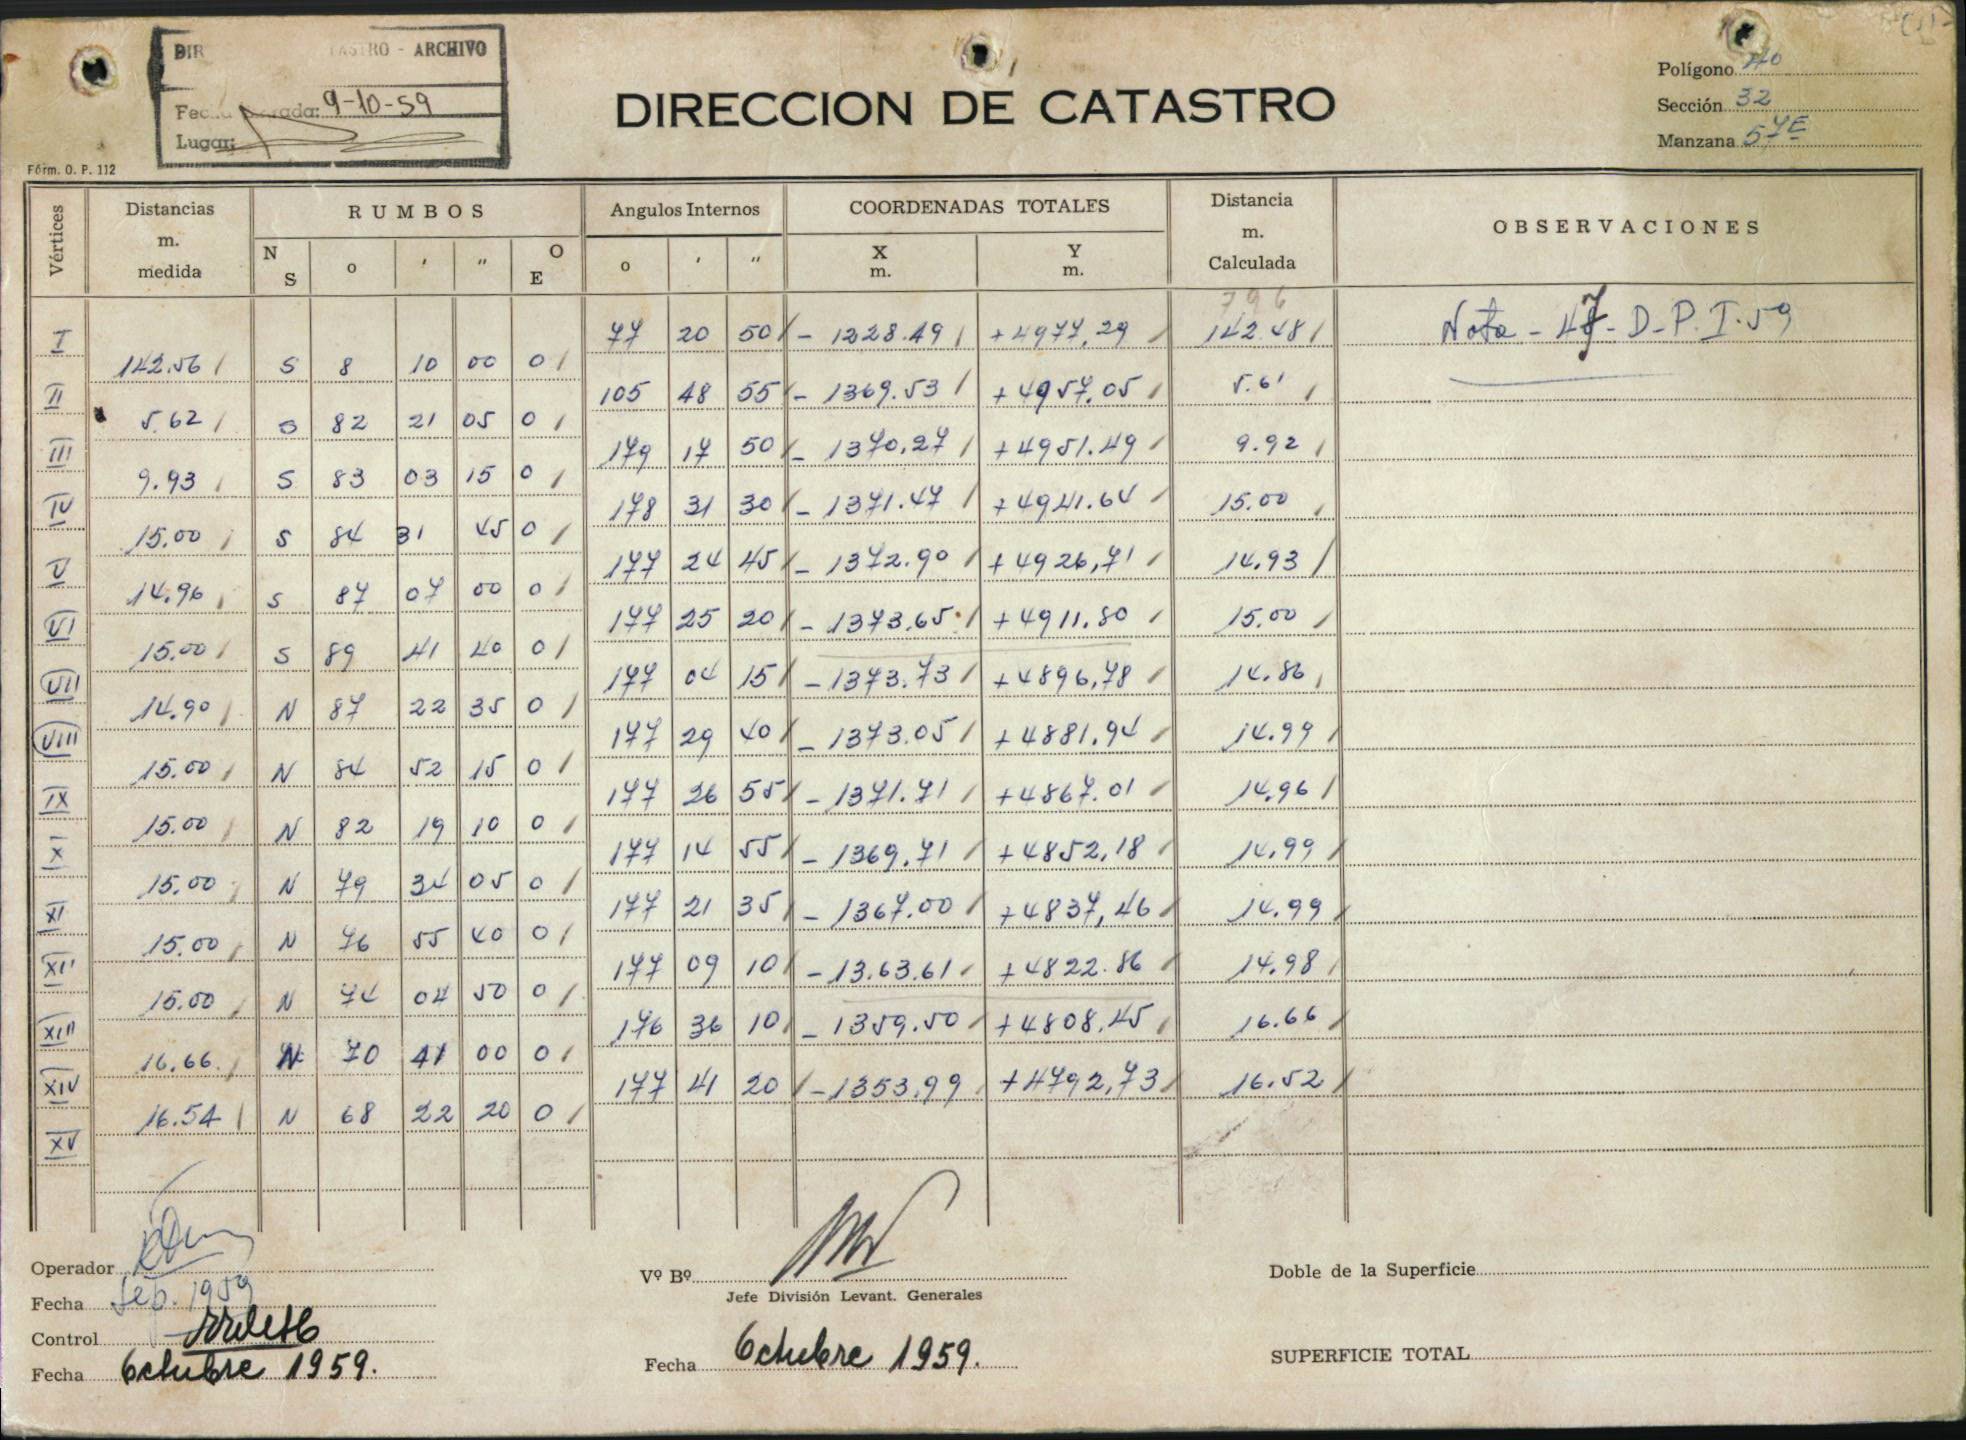 DIR      ASTRO - ARCHIVO
Fecha      rada: 9-10-59
Lugar:
Fórm. O. P. 112
DIRECCION DE CATASTRO
Polígono 40
Sección 32
Manzana 57E
Vértices Distancias m. medida RUMBOS Angulos Internos COORDENADAS TOTALES Distancia m. Calculada OBSERVACIONES
N S o ' " O E o ' " X m. Y m.
796
I 77 20 50 - 1228.49 +4977,29 142.48 Nota - 47 - D-P.I.59
142.56 S 8 10 00 0
II 105 48 55 - 1369.53 +4957,05 5.61
5.62 S 82 21 05 0
III 179 17 50 - 1370,27 +4951.49 9.92
9.93 S 83 03 15 0
IV 178 31 30 - 1371.47 +4941.64 15.00
15.00 S 84 31 45 0
V 177 24 45 - 1372.90 +4926,71 14.93
14.96 S 87 07 00 0
VI 177 25 20 - 1373.65 +4911.80 15.00
15.00 S 89 41 40 0
VII 177 04 15 -1373.73 +4896,78 14.86
14.90 N 87 22 35 0
VIII 177 29 40 - 1373.05 +4881.94 14.99
15.00 N 84 52 15 0
IX 177 26 55 - 1371.71 +4867.01 14.96
15.00 N 82 19 10 0
X 177 14 55 - 1369.71 +4852,18 14.99
15.00 N 79 34 05 0
XI 177 21 35 - 1367.00 +4837,46 14.99
15.00 N 76 55 40 0
XII 177 09 10 -13.63.61 +4822.86 14.98
15.00 N 74 04 50 0
XIII 176 36 10 - 1359.50 +4808,45 16.66
16.66 N 70 41 00 0
XIV 177 41 20 -1353.99 +4792,73 16.52
16.54 N 68 22 20 0
XV
Operador
Fecha Sep. 1959
Control
Fecha Octubre 1959.
Vº Bº
Jefe División Levant. Generales
Fecha Octubre 1959.
Doble de la Superficie
SUPERFICIE TOTAL